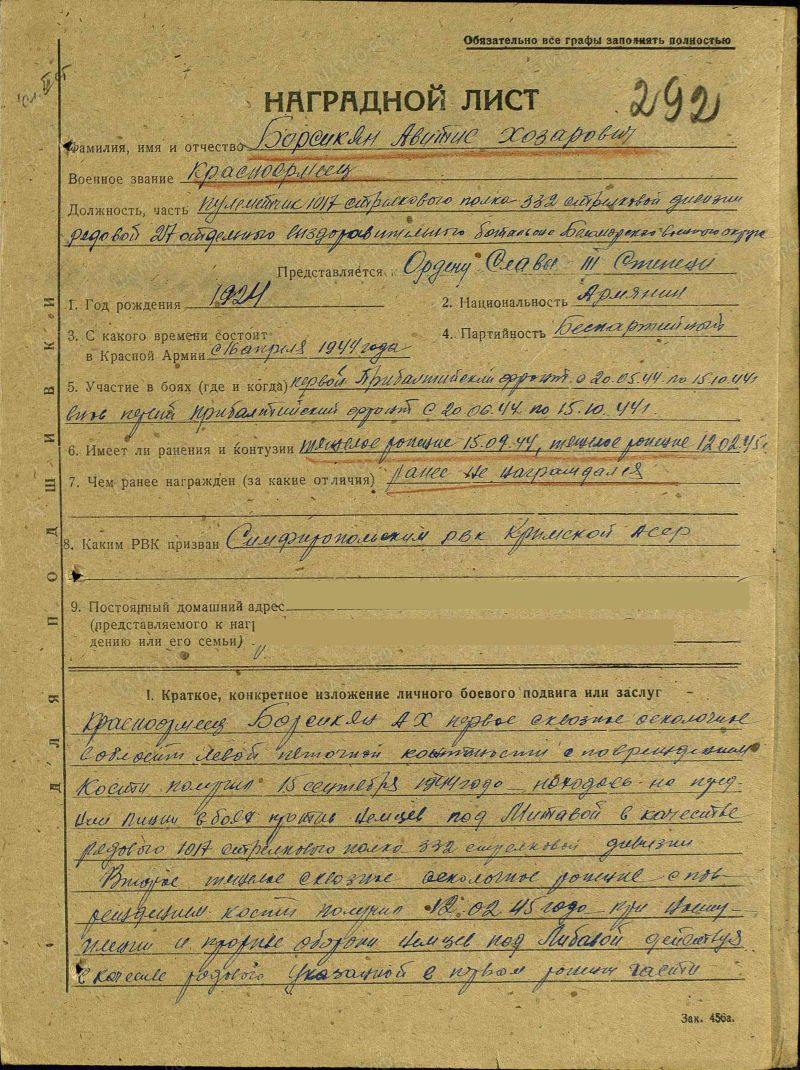 Обязательно все графы заполнять полностью
НАГРАДНОЙ ЛИСТ
292
Фамилия, имя и отчество Борсикян Авитис Хозарович
Военное звание Красноармеец
Должность, часть пулеметчик 1017 стрелкового полка 332 стрелковой дивизии
редовой 27 отдельного выздоравительного батальона Беломорского военного округа
Представляется к Ордену Славы III Степени
1. Год рождения 1924
2. Национальность Армянин
3. С какого времени состоит
в Красной Армии с 16 апреля 1944 года
4. Партийность Беспартийный
5. Участие в боях (где и когда) первой Прибалтийский фронт с 20.05.44 по 15.10.44г
перый Прибалтийский фронт с 20.06.44. по 15.10.44г.
6. Имеет ли ранения и контузии тяжелое ронение 15.09.44, тяжелое ронение 12.02.45г
7. Чем ранее награжден (за какие отличия) Ранее не награждался
8. Каким РВК призван Симфиропольским рвк Крымской Асср
9. Постоянный домашний адрес
(представляемого к наг
дению или его семьи)
I. Краткое, конкретное изложение личного боевого подвига или заслуг
Красноормеец Борсикян А Х первое сквозное осколочное
в области левой пяточной с повреждением
кости получил 15 сентября 1944 года находясь на пред
ней линии в боях против немцев под Митавой в качестве
редового 1017 стрелкового полка 332 стрелковой дивизии
Второе тяжелое сквозное осколочное ронение с пов
реждением кости получил 12.02.45 года при насту
плении и прорыве обороны немцев под Либавой действуя
в качесве редового указанной в первом ронении части
Зак. 456а.
ДЛЯ ПОДШИВКИ